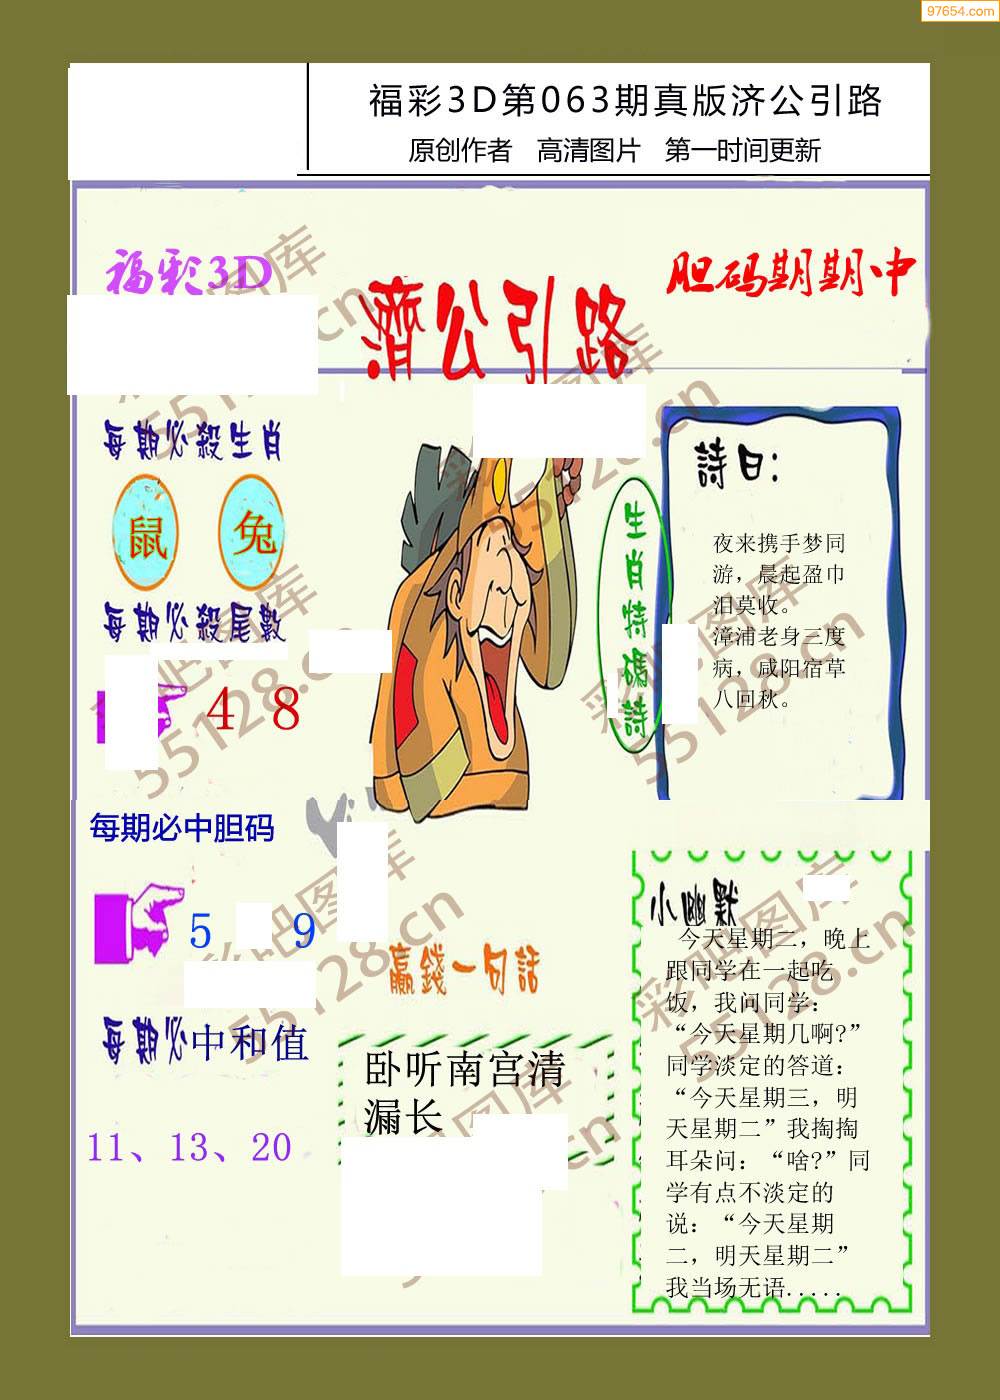 97654.com
福彩3D第063期真版济公引路
原创作者 高清图片 第一时间更新
福彩3D
濟公引路
胆码期期中
每期必殺生肖
鼠 兔
每期必殺尾數
4 8
每期必中胆码
5 9
每期必中和值
11、13、20
生肖特碼詩
詩曰:
夜来携手梦同
游，晨起盈巾
泪莫收。
漳浦老身三度
病，咸阳宿草
八回秋。
贏錢一句話
卧听南宫清
漏长
小幽默
今天星期二，晚上
跟同学在一起吃
饭，我问同学：
“今天星期几啊?”
同学淡定的答道：
“今天星期三，明
天星期二”我掏掏
耳朵问：“啥?”同
学有点不淡定的
说：“今天星期
二，明天星期二”
我当场无语.....
彩吧图库
55128.cn